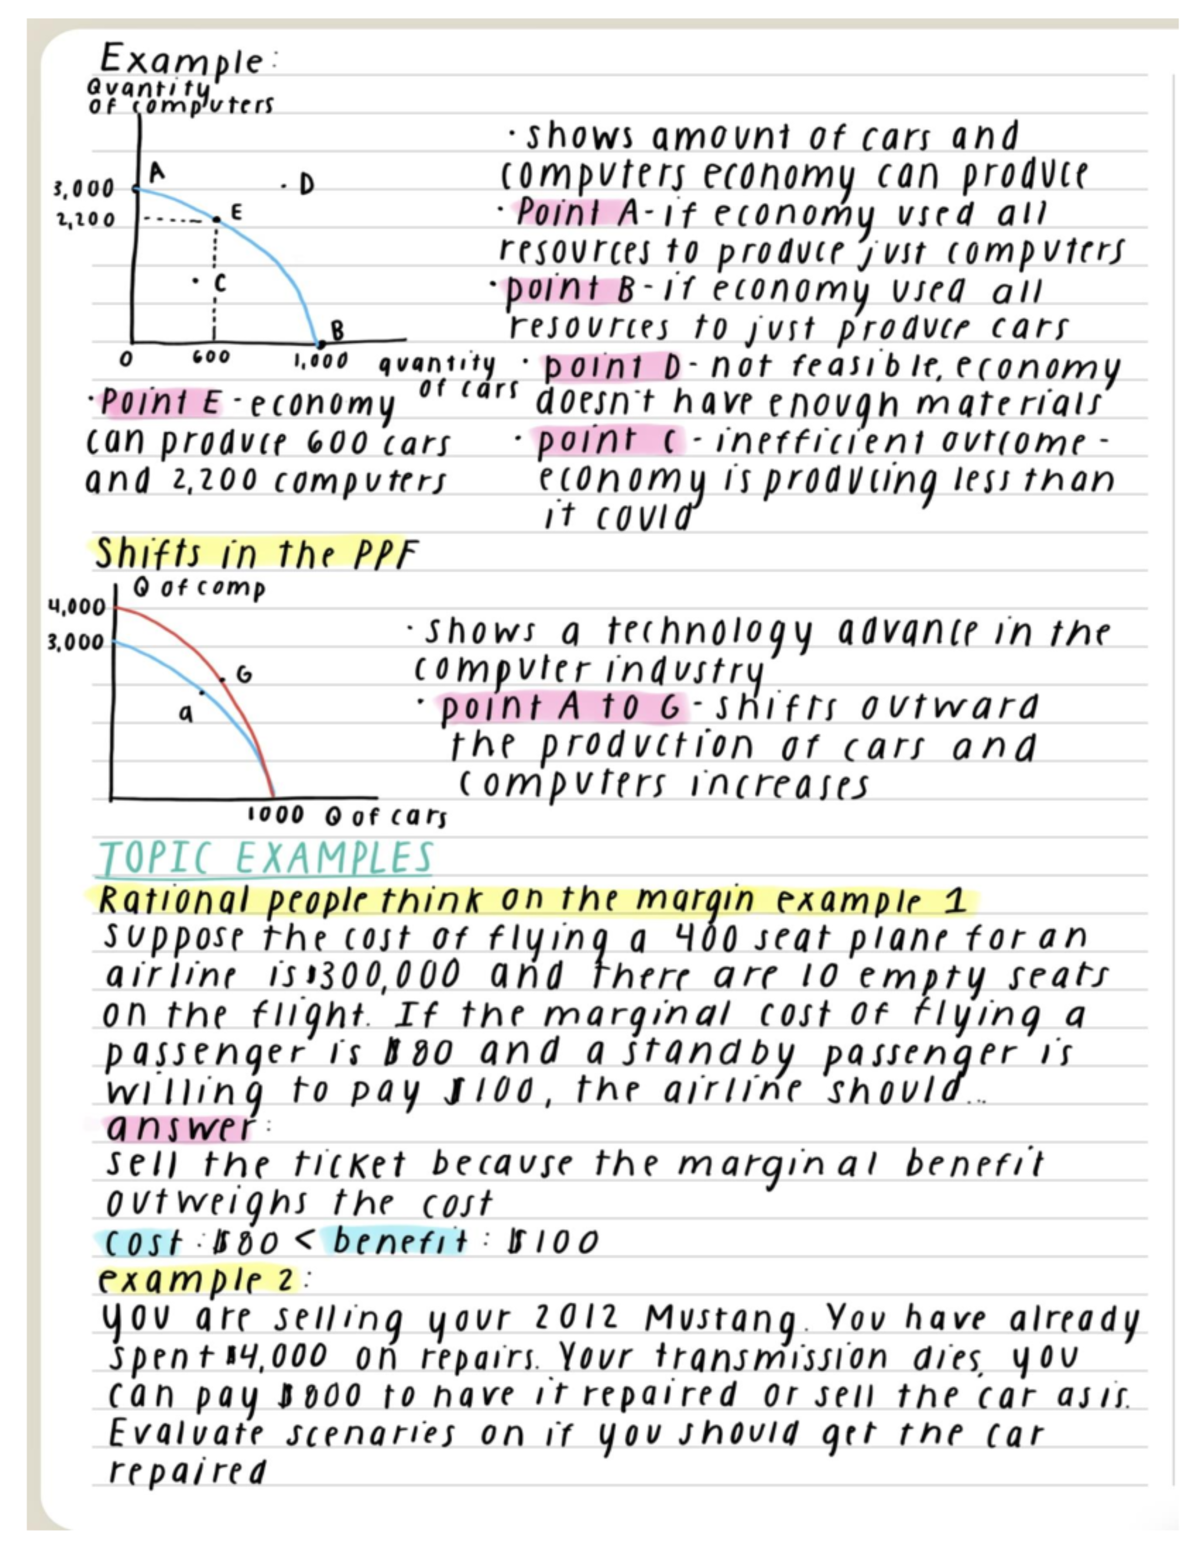 Example:
Quantity
of computers
3,000
A
D
2,200
E
C
B
0
600
1,000
quantity
of cars
• shows amount of cars and
computers economy can produce
• Point A - if economy used all
resources to produce just computers
• point B - if economy used all
resources to just produce cars
• point D - not feasible, economy
doesn't have enough materials
• point C - inefficient outcome -
economy is producing less than
it could
• Point E - economy
can produce 600 cars
and 2,200 computers
Shifts in the PPF
Q of comp
4,000
3,000
G
a
1000 Q of cars
• shows a technology advance in the
computer industry
• point A to G - shifts outward
the production of cars and
computers increases
TOPIC EXAMPLES
Rational people think on the margin example 1
suppose the cost of flying a 400 seat plane for an
airline is $300,000 and there are 10 empty seats
on the flight. If the marginal cost of flying a
passenger is $80 and a standby passenger is
willing to pay $100, the airline should...
answer:
sell the ticket because the marginal benefit
outweighs the cost
cost: $80 < benefit: $100
example 2:
you are selling your 2012 Mustang. You have already
spent $4,000 on repairs. Your transmission dies, you
can pay $800 to have it repaired or sell the car as is.
Evaluate scenaries on if you should get the car
repaired